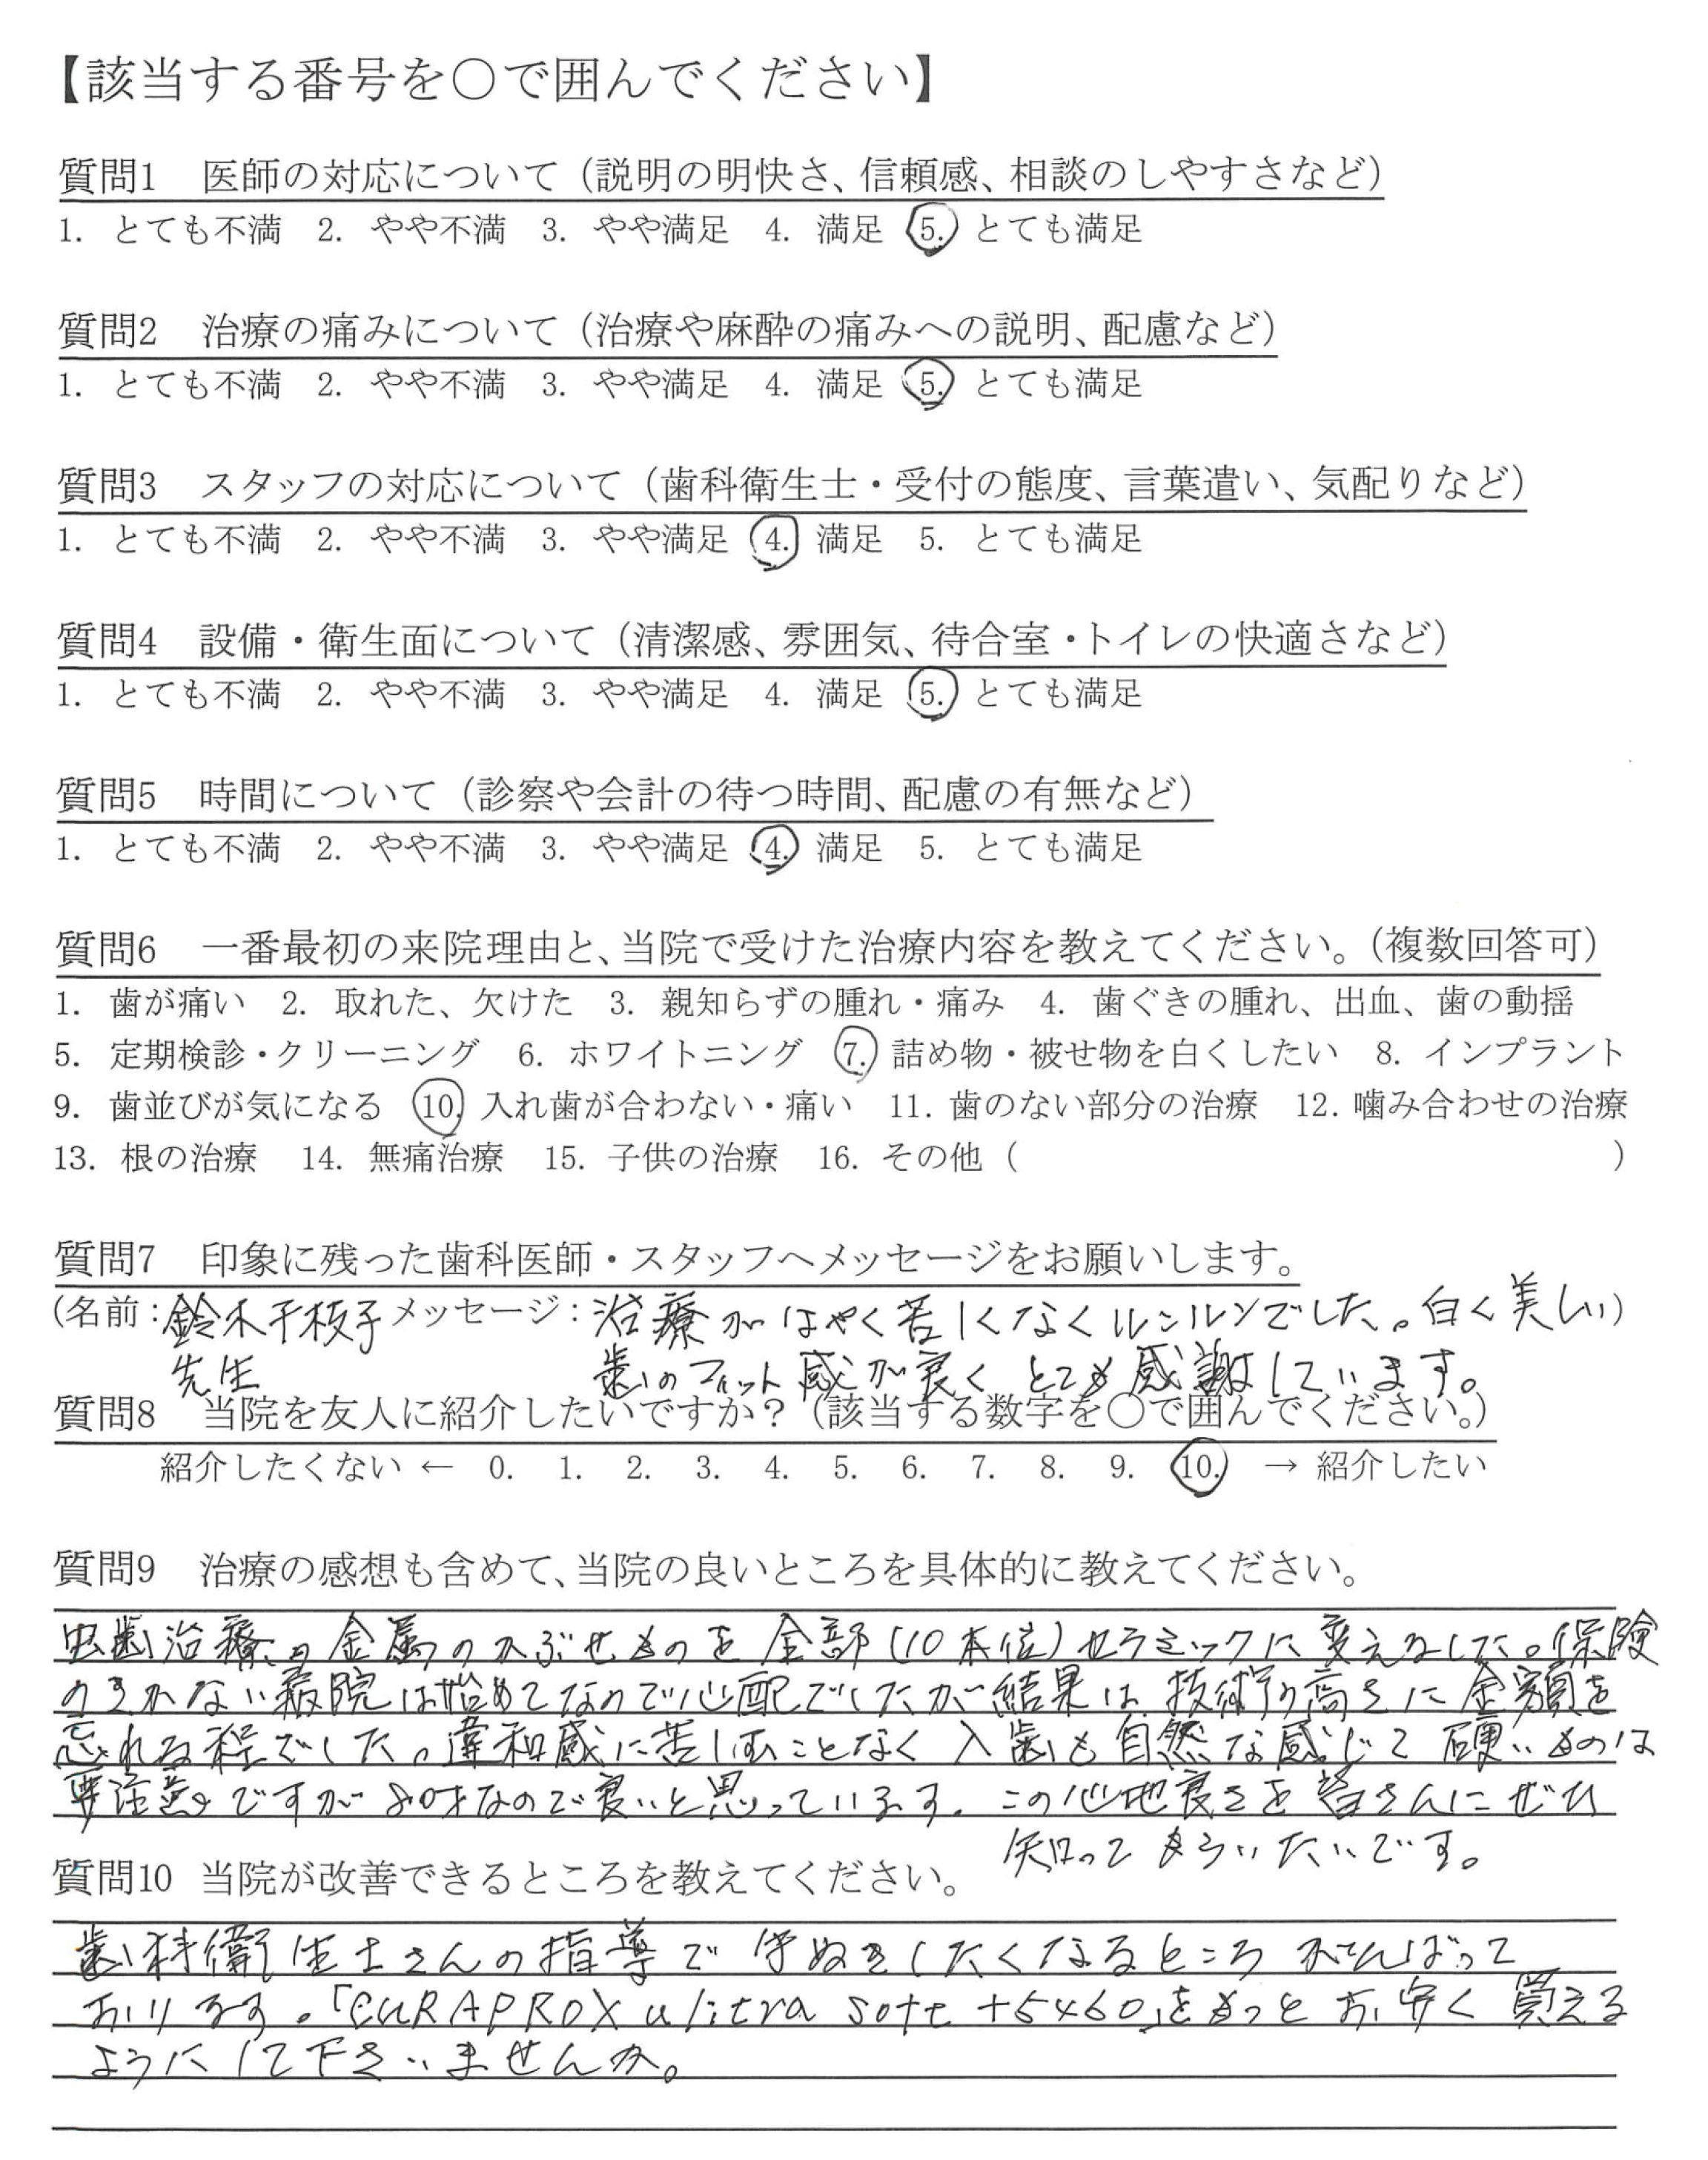 【該当する番号を○で囲んでください】
質問1 医師の対応について（説明の明快さ、信頼感、相談のしやすさなど）
1. とても不満 2. やや不満 3. やや満足 4. 満足 5. とても満足
質問2 治療の痛みについて（治療や麻酔の痛みへの説明、配慮など）
1. とても不満 2. やや不満 3. やや満足 4. 満足 5. とても満足
質問3 スタッフの対応について（歯科衛生士・受付の態度、言葉遣い、気配りなど）
1. とても不満 2. やや不満 3. やや満足 4. 満足 5. とても満足
質問4 設備・衛生面について（清潔感、雰囲気、待合室・トイレの快適さなど）
1. とても不満 2. やや不満 3. やや満足 4. 満足 5. とても満足
質問5 時間について（診察や会計の待つ時間、配慮の有無など）
1. とても不満 2. やや不満 3. やや満足 4. 満足 5. とても満足
質問6 一番最初の来院理由と、当院で受けた治療内容を教えてください。（複数回答可）
1. 歯が痛い 2. 取れた、欠けた 3. 親知らずの腫れ・痛み 4. 歯ぐきの腫れ、出血、歯の動揺
5. 定期検診・クリーニング 6. ホワイトニング 7. 詰め物・被せ物を白くしたい 8. インプラント
9. 歯並びが気になる 10. 入れ歯が合わない・痛い 11. 歯のない部分の治療 12. 噛み合わせの治療
13. 根の治療 14. 無痛治療 15. 子供の治療 16. その他（ ）
質問7 印象に残った歯科医師・スタッフへメッセージをお願いします。
（名前：鈴木千枝子 メッセージ：治療がはやく苦しくなくルンルンでした。白く美しい）
先生 歯のフィット感が良くとても感謝しています。
質問8 当院を友人に紹介したいですか？（該当する数字を○で囲んでください。）
紹介したくない ← 0. 1. 2. 3. 4. 5. 6. 7. 8. 9. 10. → 紹介したい
質問9 治療の感想も含めて、当院の良いところを具体的に教えてください。
虫歯治療の金属のかぶせものを全部（10本位）セラミックに変えました。保険
のきかない病院は始めてなので心配でしたが結果は技術の高さに金額を
忘れる程でした。違和感に苦しむことなく入歯も自然な感じで硬いものは
要注意ですが80才なので良いと思っています。この心地良さを皆さんにぜひ
知ってもらいたいです。
質問10 当院が改善できるところを教えてください。
歯科衛生士さんの指導で手ぬきしたくなるところがんばって
おります。「CURAPROX ulitra soft +5460」をもっとお安く買える
ようにして下さいませんか。